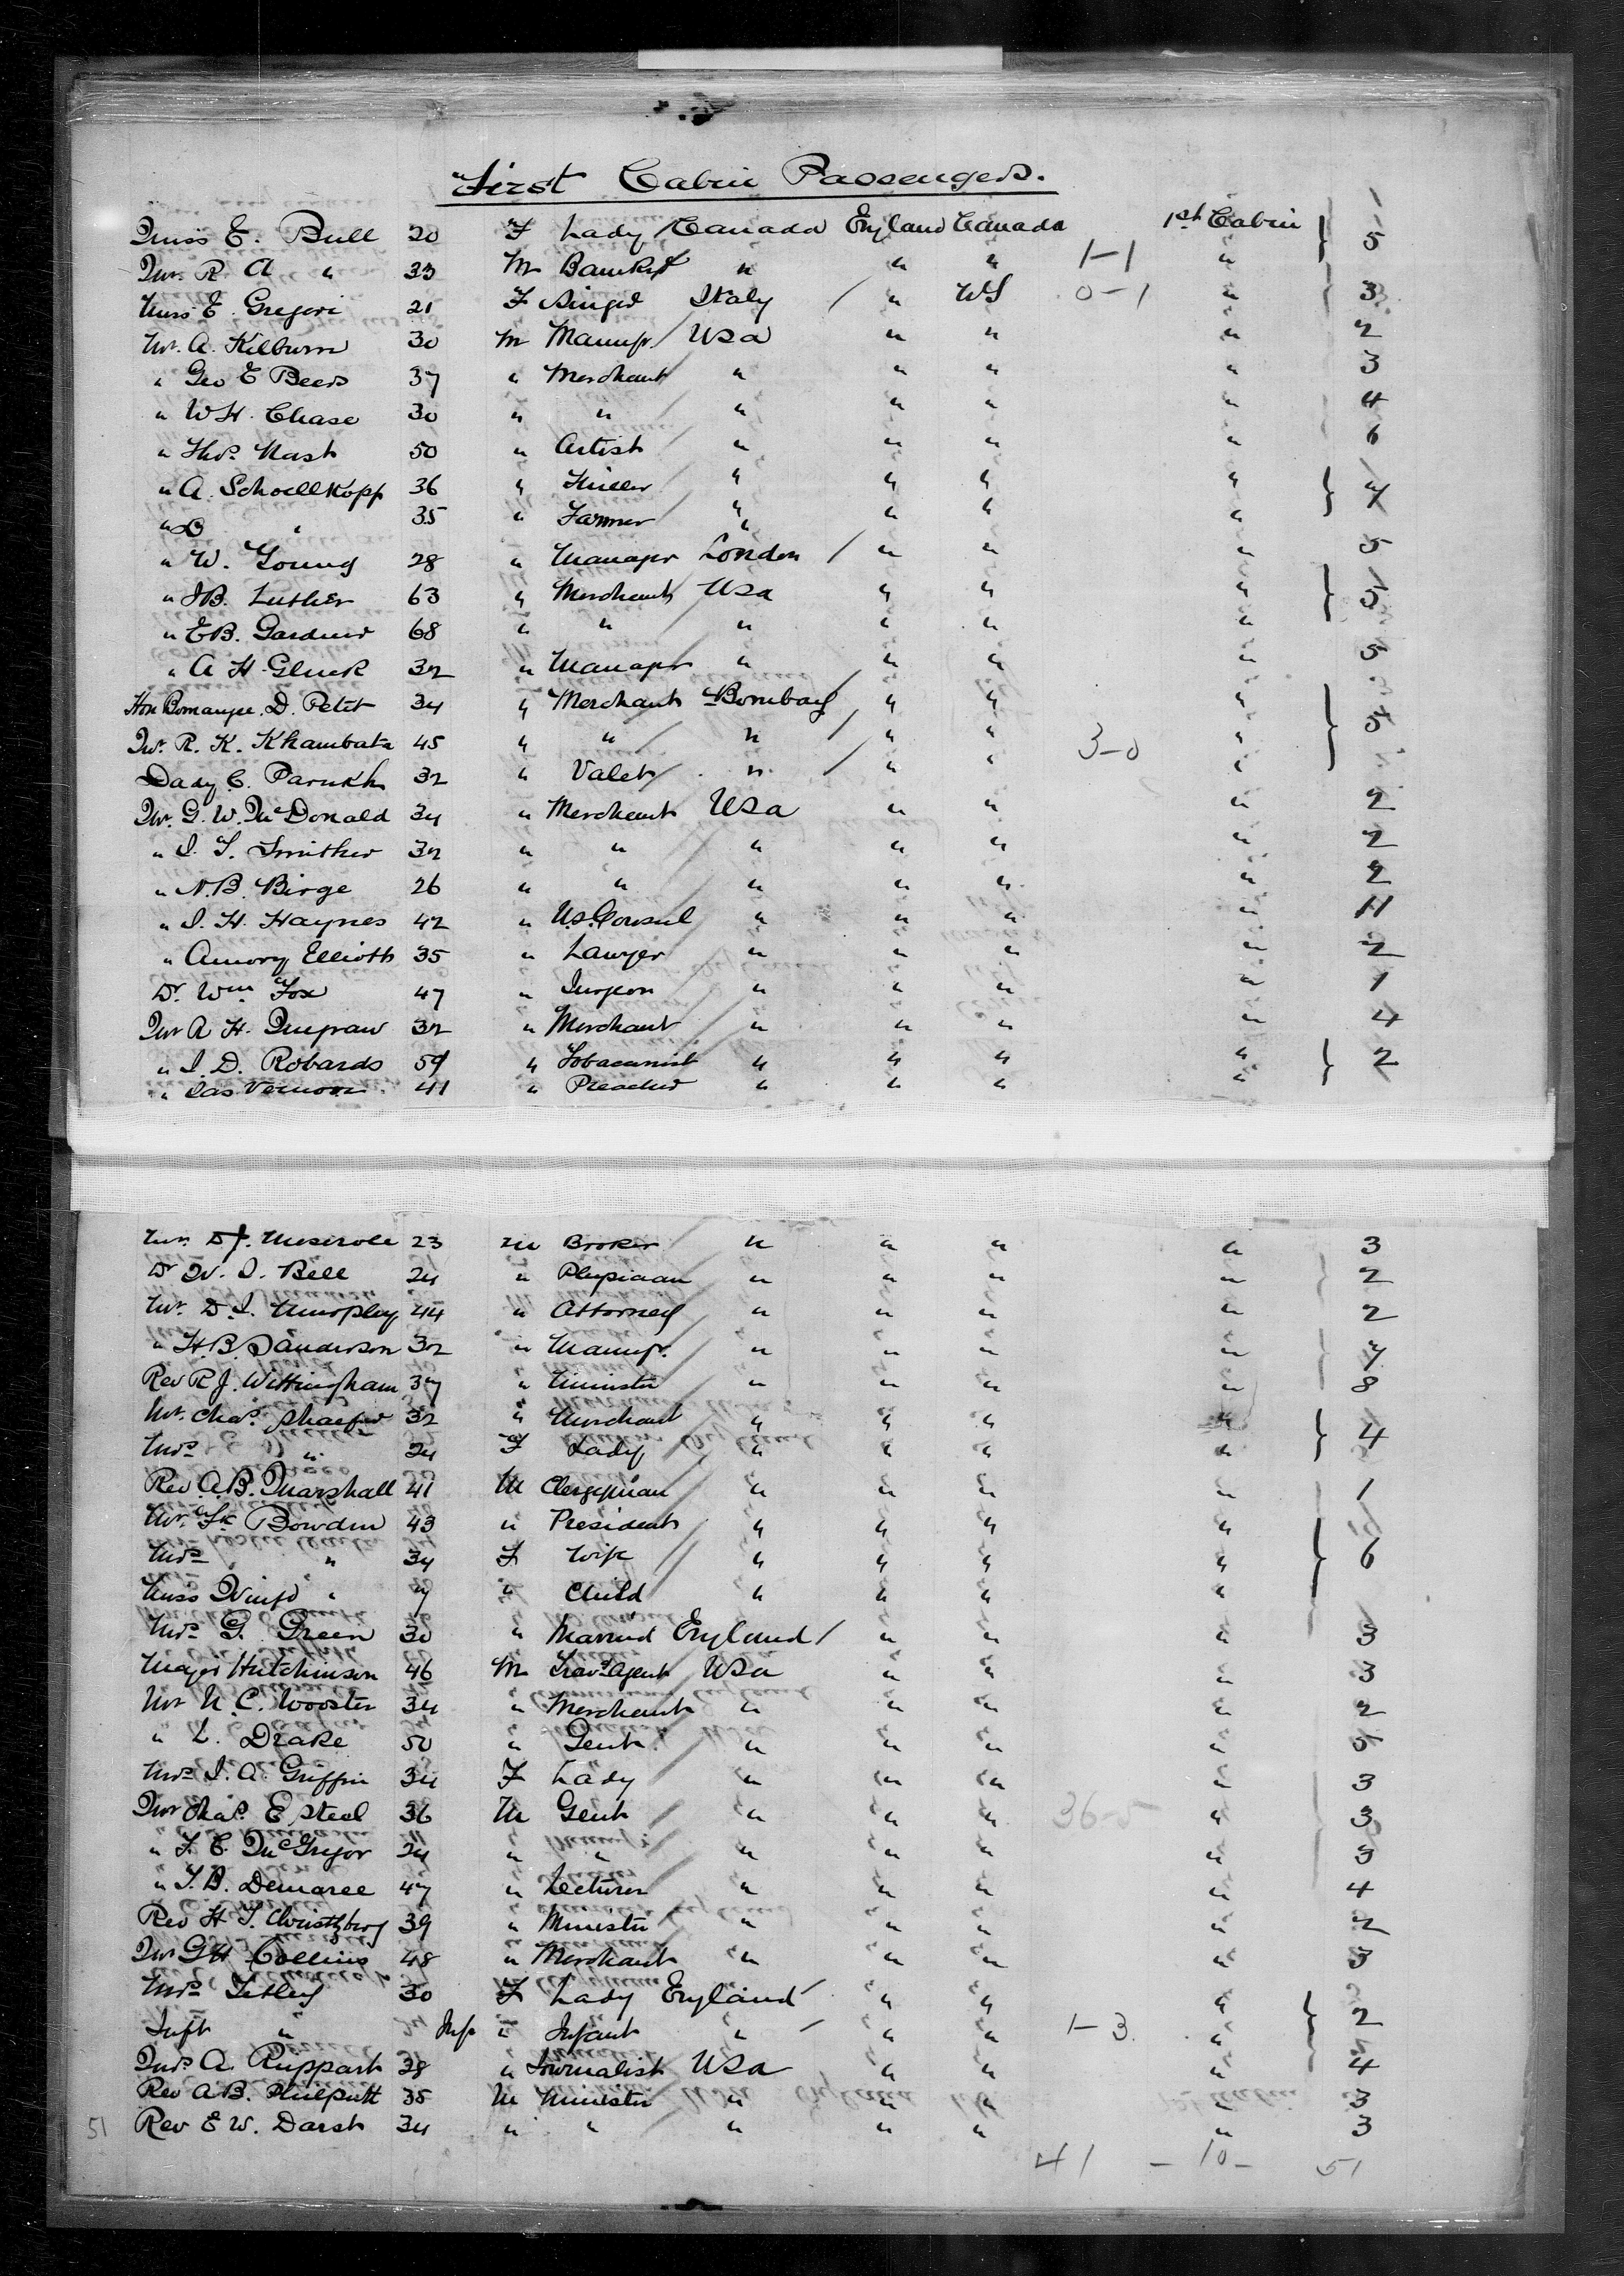 First Cabin Passengers.
Miss E. Bull 20 F Lady Canada England Canada 1st Cabin 5
Mr. R A " 33 M Banker " " " 1-1 "
Miss E. Gregori 21 F Singer Italy / " US 0-1 " 3
Mr. A. Kilburn 30 M Manufr USA " " " 2
" Geo E Beers 37 " Merchant " " " " 3
" W H. Chase 30 " " " " " " 4
" Thos. Nast 50 " Artist " " " " 6
" A. Schoellkopf 36 " Miller " " " " 7
" " 35 " Farmer " " " "
" W. Young 28 " Manager London / " " " 5
" J B. Luther 63 " Merchant USA " " " 5
" E B. Gardner 68 " " " " " "
" A H. Gluck 32 " Manager " " " " 5
Hon Bomanjee. D. Petit 34 " Merchant Bombay / " " " 5
Mr. R. K. Khambata 45 " " " / " " 3-0 "
Dady C. Parukh 32 " Valet " / " " "
Mr. G. W. McDonald 34 " Merchant USA " " " 2
" J. S. Smither 32 " " " " " " 2
" N. B. Birge 26 " " " " " " 2
" J. H. Haynes 42 " U.S. Consul " " " " 11
" Amory Elliott 35 " Lawyer " " " " 2
Dr. Wm Fox 47 " Surgeon " " " " 1
Mr A H. 32 " Merchant " " " " 4
" J. D. Robards 59 " Tobacconist " " " " 2
" Jas. Vernon 41 " Preacher " " " "
Mr. D J. Meserole 23 M Broker " " " " 3
Dr W. J. Bell 24 " Physician " " " " 2
Mr. D. J. Murphy 44 " Attorney " " " " 2
" H. B. Sanderson 32 " Manufr. " " " " 7
Rev R J. Wittingham 37 " Minister " " " " 8
Mr. Chas. Shaefer 32 " Merchant " " " " 4
Mrs " 24 F Lady " " " "
Rev. A. B. Marshall 41 M Clergyman " " " " 1
Mr. Bowden 43 " President " " " " 6
Mrs " 34 F Wife " " " "
Miss " 7 " Child " " " "
Mrs G. Green 30 " Married England / " " " 3
Major Hutchinson 46 M Trav. Agent USA " " " 3
Mr N. C. Wooster 34 " Merchant " " " " 2
" L. Drake 50 " Gent. " " " " 5
Mrs J. A. Griffin 34 F Lady " " " " 3
Mr Chas. E Steel 36 M Gent " " " 36-5 " 3
" F. C. McGregor 24 " " " " " " 3
" T. B. Demaree 47 " Lecturer " " " " 4
Rev H T. 39 " Minister " " " " 2
Mr G H Collins 48 " Merchant " " " " 3
Mrs Tetley 30 F Lady England " " " 2
Inft " Inf " Infant " " " 1-3 "
Mrs. A. Ruppart 38 " Journalist USA " " " 4
Rev A B. Philputt 35 M Minister " " " " 3
51 Rev E W. Darst 34 " " " " " " 3
41 - 10 - 51